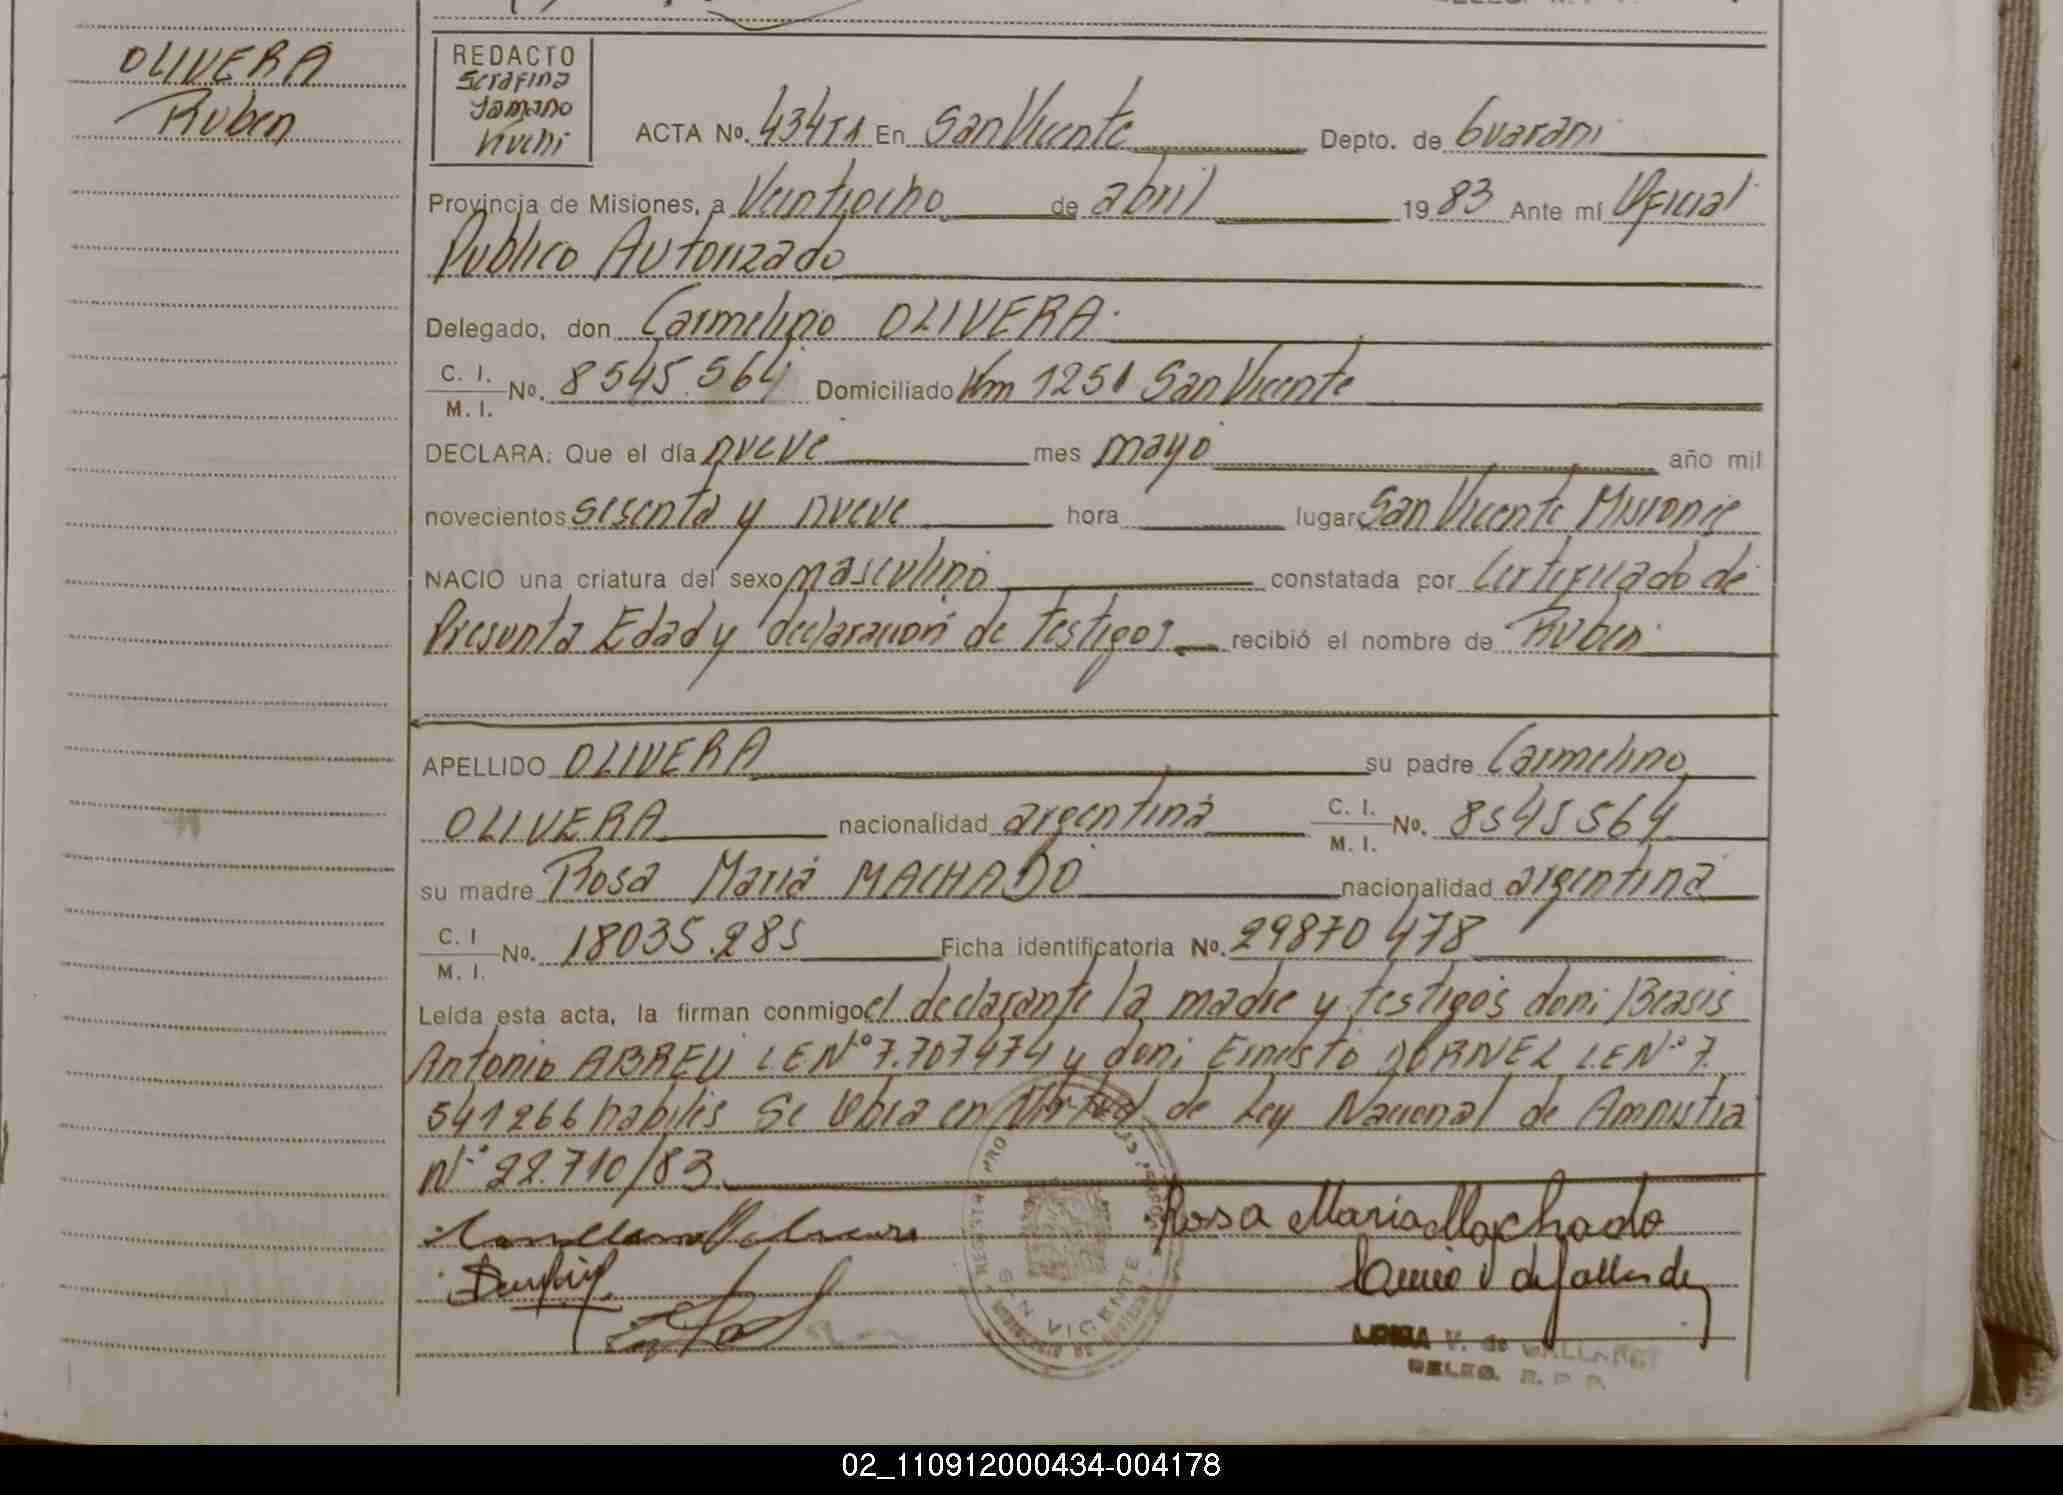 OLIVERA
Ruben
REDACTO
Serafina
Kuchi
ACTA No. 434T1 En San Vicente Depto. de Guarani
Provincia de Misiones, a Veintiocho de abril 1983 Ante mí Oficial
Publico Autorizado
Delegado, don Carmelino OLIVERA.
C. I. / M. I. No. 8545.564 Domiciliado Km 1251 San Vicente
DECLARA: Que el día nueve mes mayo año mil
novecientos sesenta y nueve hora lugar San Vicente Misiones
NACIO una criatura del sexo masculino constatada por Certificado de
Presunta Edad y declaración de testigos recibió el nombre de Ruben
APELLIDO OLIVERA su padre Carmelino
OLIVERA nacionalidad argentina C. I. / M. I. No. 8545564
su madre Rosa Maria MACHADO nacionalidad argentina
C. I / M. I. No. 18035.285 Ficha identificatoria No. 29870478
Leída esta acta, la firman conmigo el declarante la madre y testigos don:
Antonio ABREU LE Nº 7.707474 y don: Ernesto DORNEL L.E Nº 7.
541266 habiles Se labra en Virtud de Ley Nacional de Amnistia
Nº 22.710/83
Rosa Maria Machado
SAN VICENTE
V. de
DELEG. R. P. P.
02_110912000434-004178